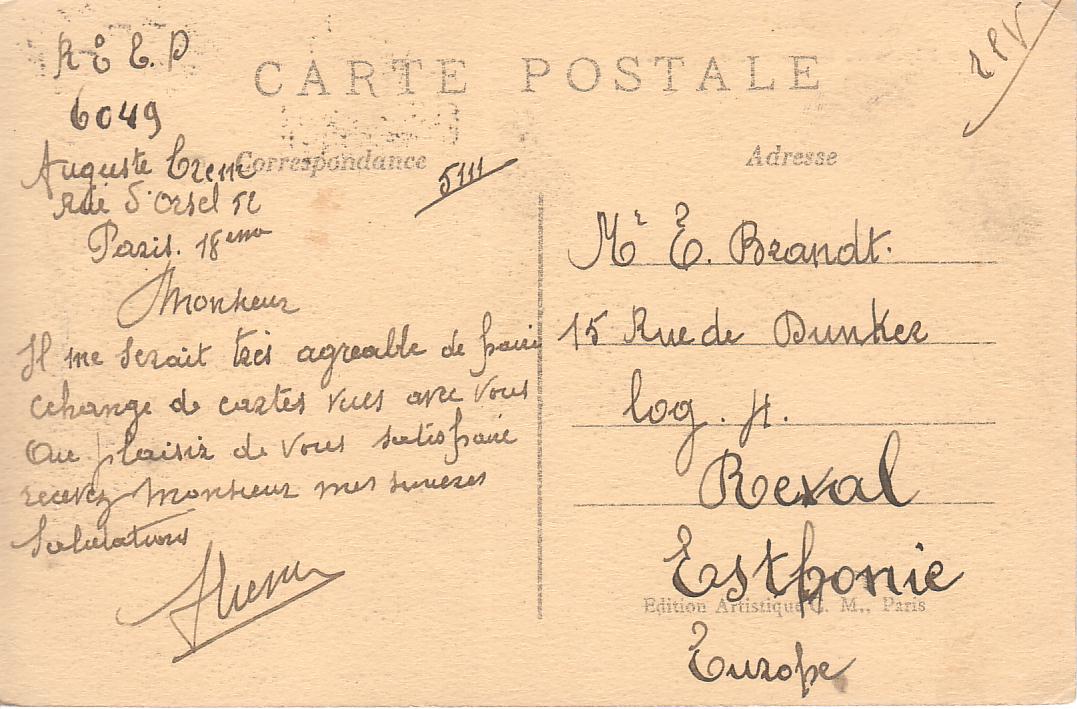 CARTE POSTALE
Correspondance
Adresse
R E E. P
6049
5111
Auguste
Rue d'Orsel 52
Paris. 18eme
Monsieur
Il me serait très agreable de faire
echange de cartes vues avec vous
Au plaisir de vous satisfaire
recevez Monsieur mes sinceres
Salutations
Mr E. Brandt.
15 Rue de Dunker
log. 4.
Reval
Esthonie
Europe
Edition Artistique C. M., Paris